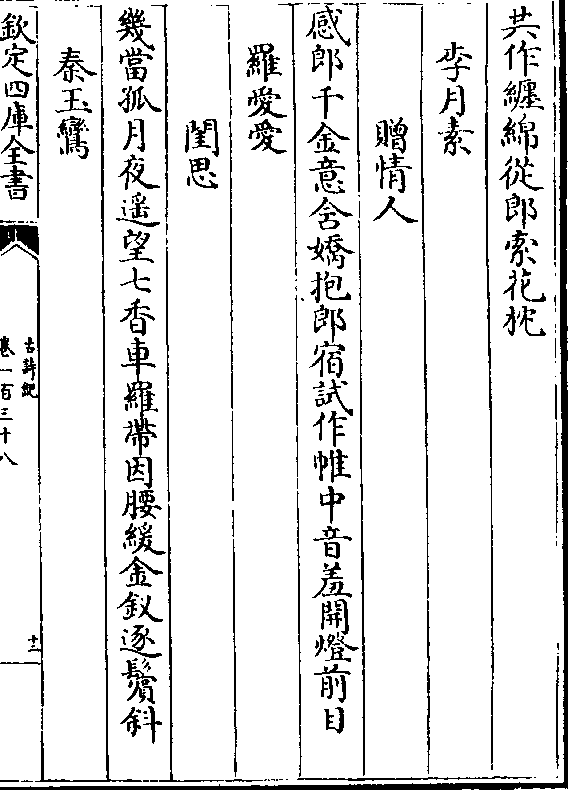 共作纏綿從郎索花枕
李月素
贈情人
感郎千金意含嬌抱郎宿試作帷中音羞開燈前目
羅愛愛
閨思
幾當孤月夜遥望七香車羅帶因腰緩金釵逐鬢斜
秦玉鸞
欽定四庫全書
古詩紀
卷一百三十八
十二